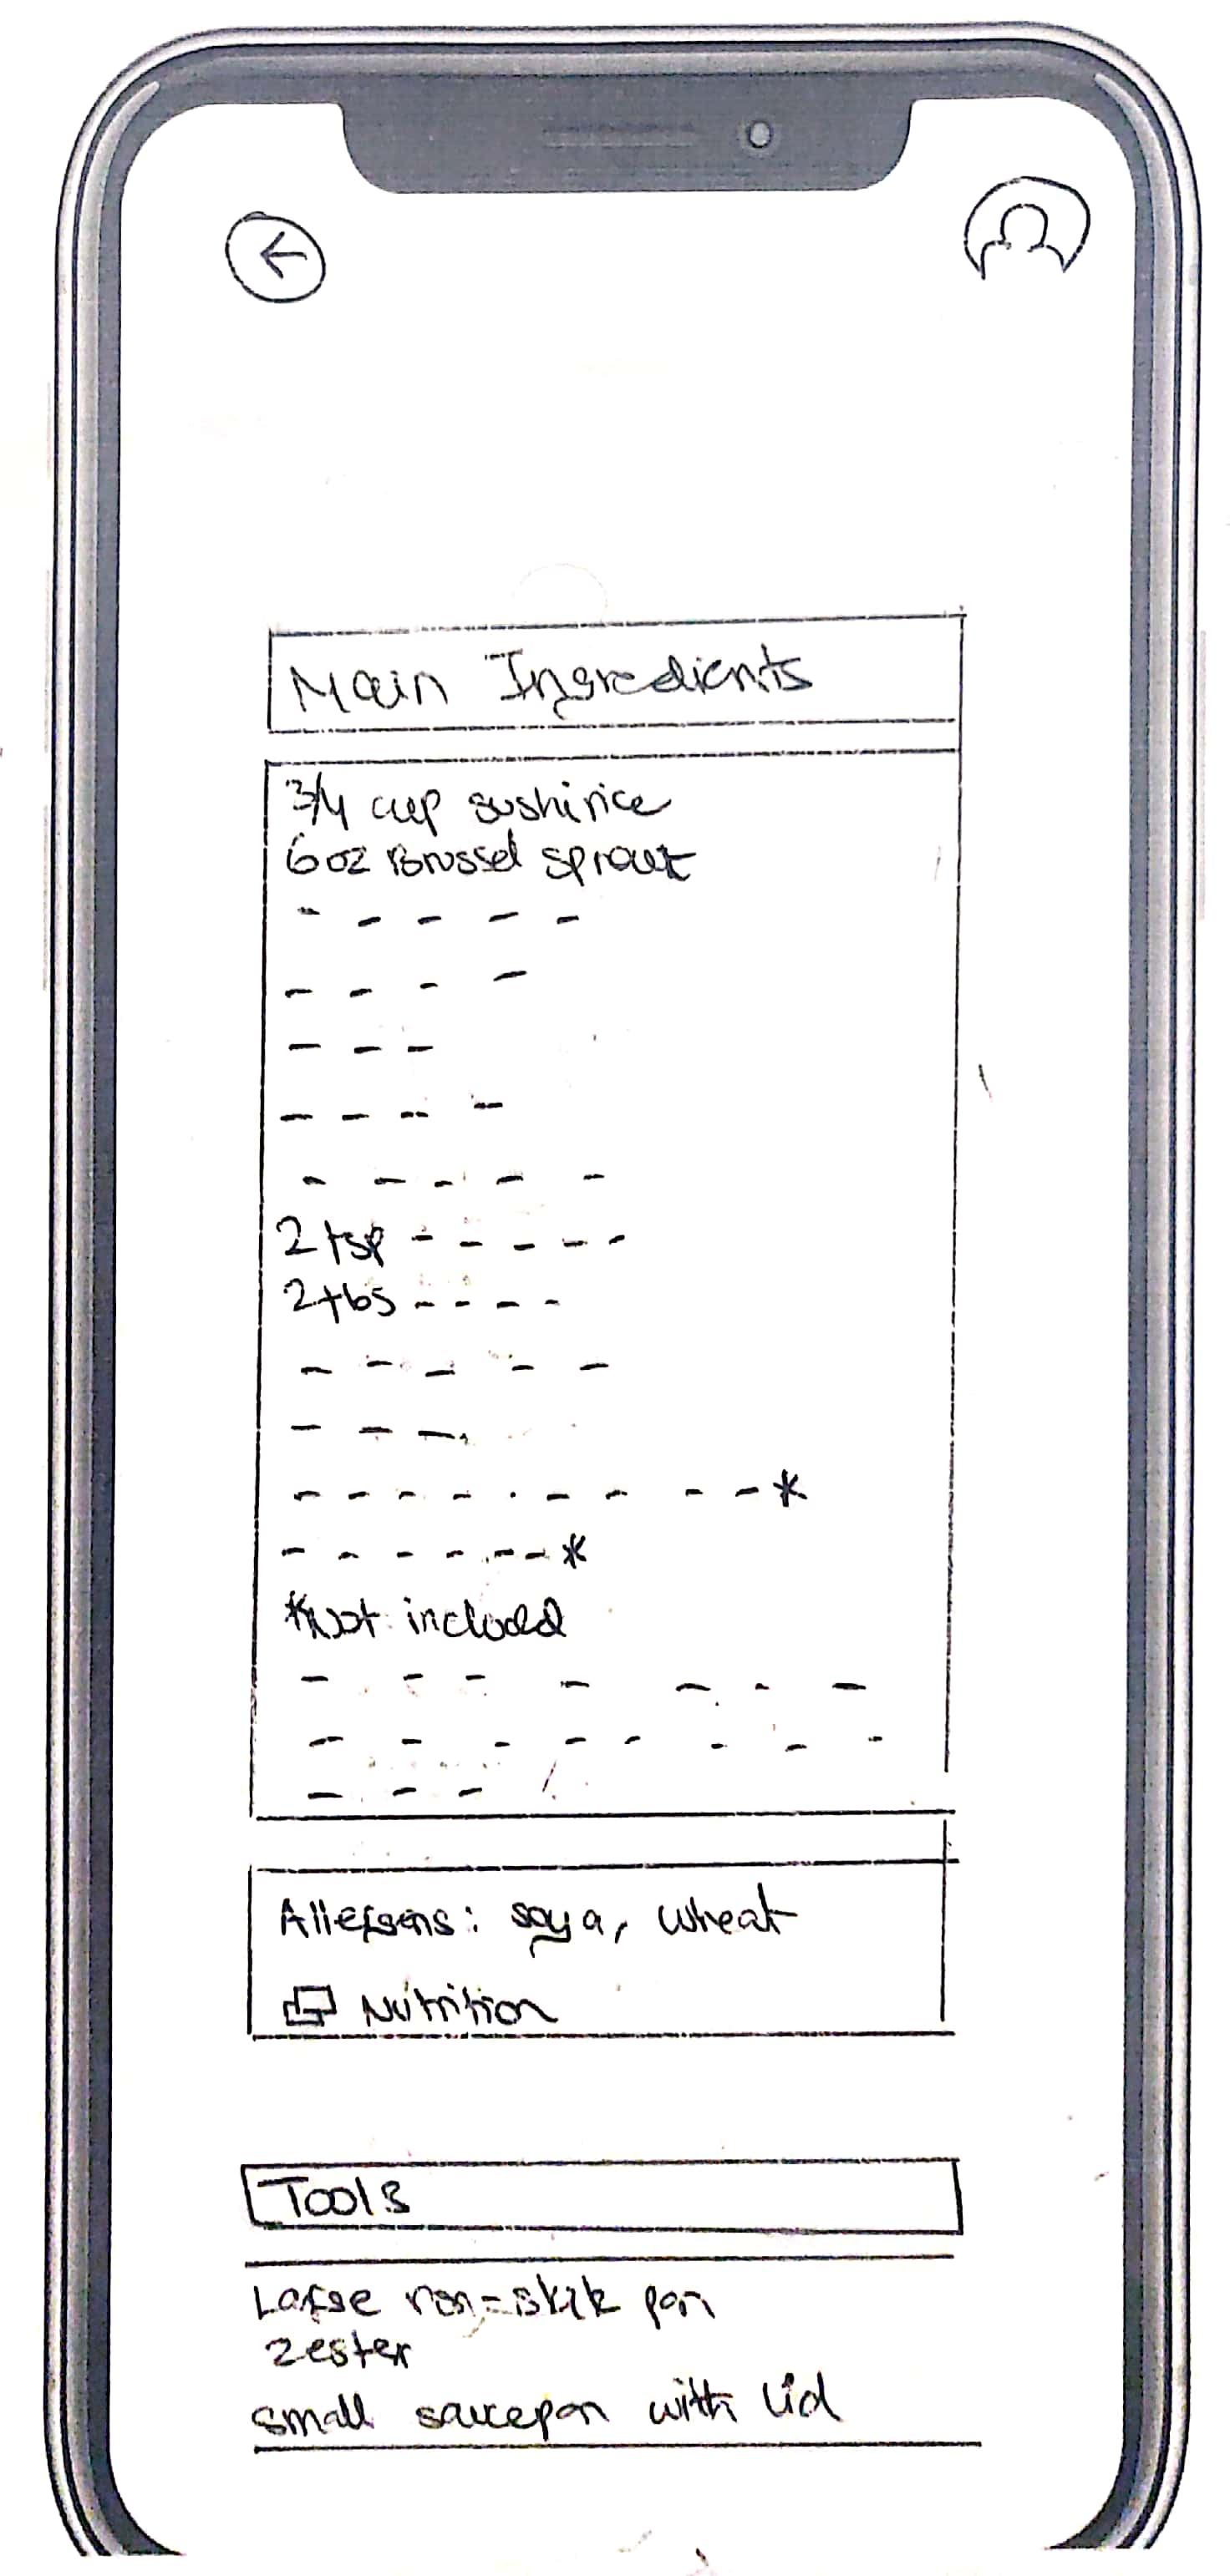 Main Ingredients
3/4 cup sushi rice
6 oz Brussel sprout
- - - - -
- - - -
- - -
- - - -
- - - - -
2 tsp - - - - -
2 tbs - - - -
- - - - -
- - -
- - - - - - - - - *
- - - - - - *
*Not included
- - - - - - -
- - - - - - - -
- - -
Allergens: soya, wheat
Nutrition
Tools
Large non-stick pan
zester
small saucepan with lid